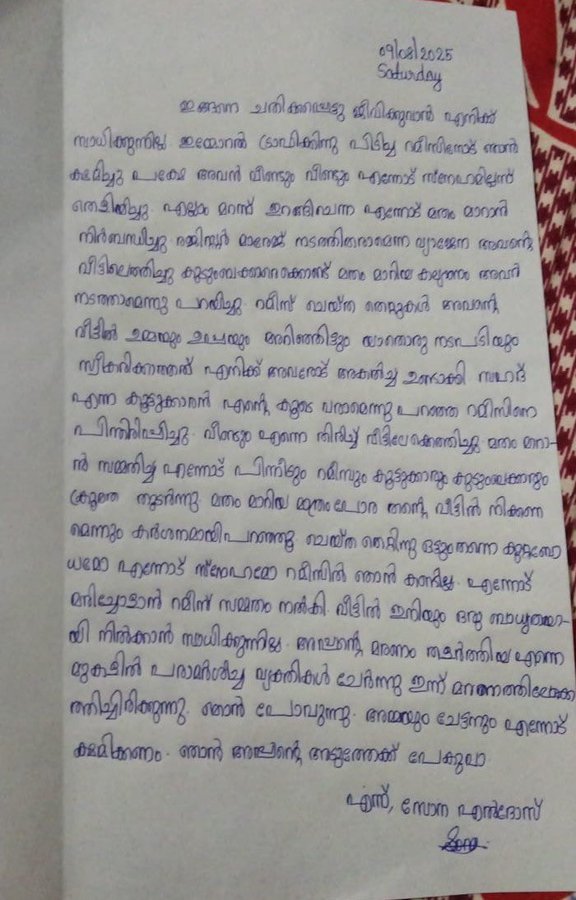 09/08/2025
Saturday
ഇങ്ങനെ ചതിക്കപ്പെട്ടു ജീവിക്കുവാൻ എനിക്ക്
സാധിക്കുന്നില്ല. ഇമ്മോറൽ ട്രാഫിക്കിന്നു പിടിച്ച റമീസിനോട് ഞാൻ
ക്ഷമിച്ചു പക്ഷേ അവൻ വീണ്ടും വീണ്ടും എന്നോട് സ്നേഹമില്ലന്ന്
തെളിയിച്ചു എല്ലാം മറന്ന് ഇറങ്ങിവന്ന എന്നോട് മതം മാറാൻ
നിർബന്ധിച്ചു. രജിസ്റ്റർ മാരേജ് നടത്തിതരാമെന്ന വ്യാജേന അവന്റെ
വീട്ടിലെത്തിച്ചു കുടുംബക്കാരെക്കൊണ്ട് മതം മാറിയ കല്യാണം അവർ
നടത്താമെന്നു പറയിച്ചു റമീസ് ചെയ്ത തെറ്റുകൾ അവന്റെ
വീട്ടിൽ ഉമ്മയും ഉപ്പയും അറിഞ്ഞിട്ടും യാതൊരു നടപടിയും
സ്വീകരിക്കാത്തത് എനിക്ക് അവരോട് അകൽച്ച ഉണ്ടാക്കി സഹദ്
എന്ന കൂട്ടുകാരൻ എന്റെ കൂടെ വരാമെന്നു പറഞ്ഞ റമീസിനെ
പിന്തിരിപ്പിച്ചു. വീണ്ടും എന്നെ തിരിച്ച് വീട്ടിലേക്കെത്തിച്ചു. മതം മാറാ-
ൻ സമ്മതിച്ച എന്നോട് പിന്നീടും റമീസും കൂട്ടുക്കാരും കുടുംബക്കാരും
ക്രൂരത തുടർന്നു മതം മാറിയ മാത്രം പോര തന്റെ വീട്ടിൽ നിക്കണ
മെന്നും കർശനമായി പറഞ്ഞു. ചെയ്ത തെറ്റിന്നു ഒട്ടുംതന്നെ കുറ്റബോ
ധമോ എന്നോട് സ്നേഹമോ റമീസിൽ ഞാൻ കണ്ടില്ല. എന്നോട്
മരിച്ചോളാൻ റമീസ് സമ്മതം നൽകി. വീട്ടിൽ ഇനിയും ഒരു ബാധ്യതയാ-
യി നിൽക്കാൻ സാധിക്കുന്നില്ല. അപ്പന്റെ മരണം തളർത്തിയ എന്നെ
മുകളിൽ പരാമർശിച്ച വ്യക്തികൾ ചേർന്നു ഇന്ന് മരണത്തിലേക്കെ
ത്തിച്ചിരിക്കുന്നു. ഞാൻ പോവുന്നു. അമ്മയും ചേട്ടനും എന്നോട്
ക്ഷമിക്കണം. ഞാൻ അപ്പന്റെ അടുത്തേക്ക് പോകുവാ.
എന്ന്, സോന എൽദോസ്